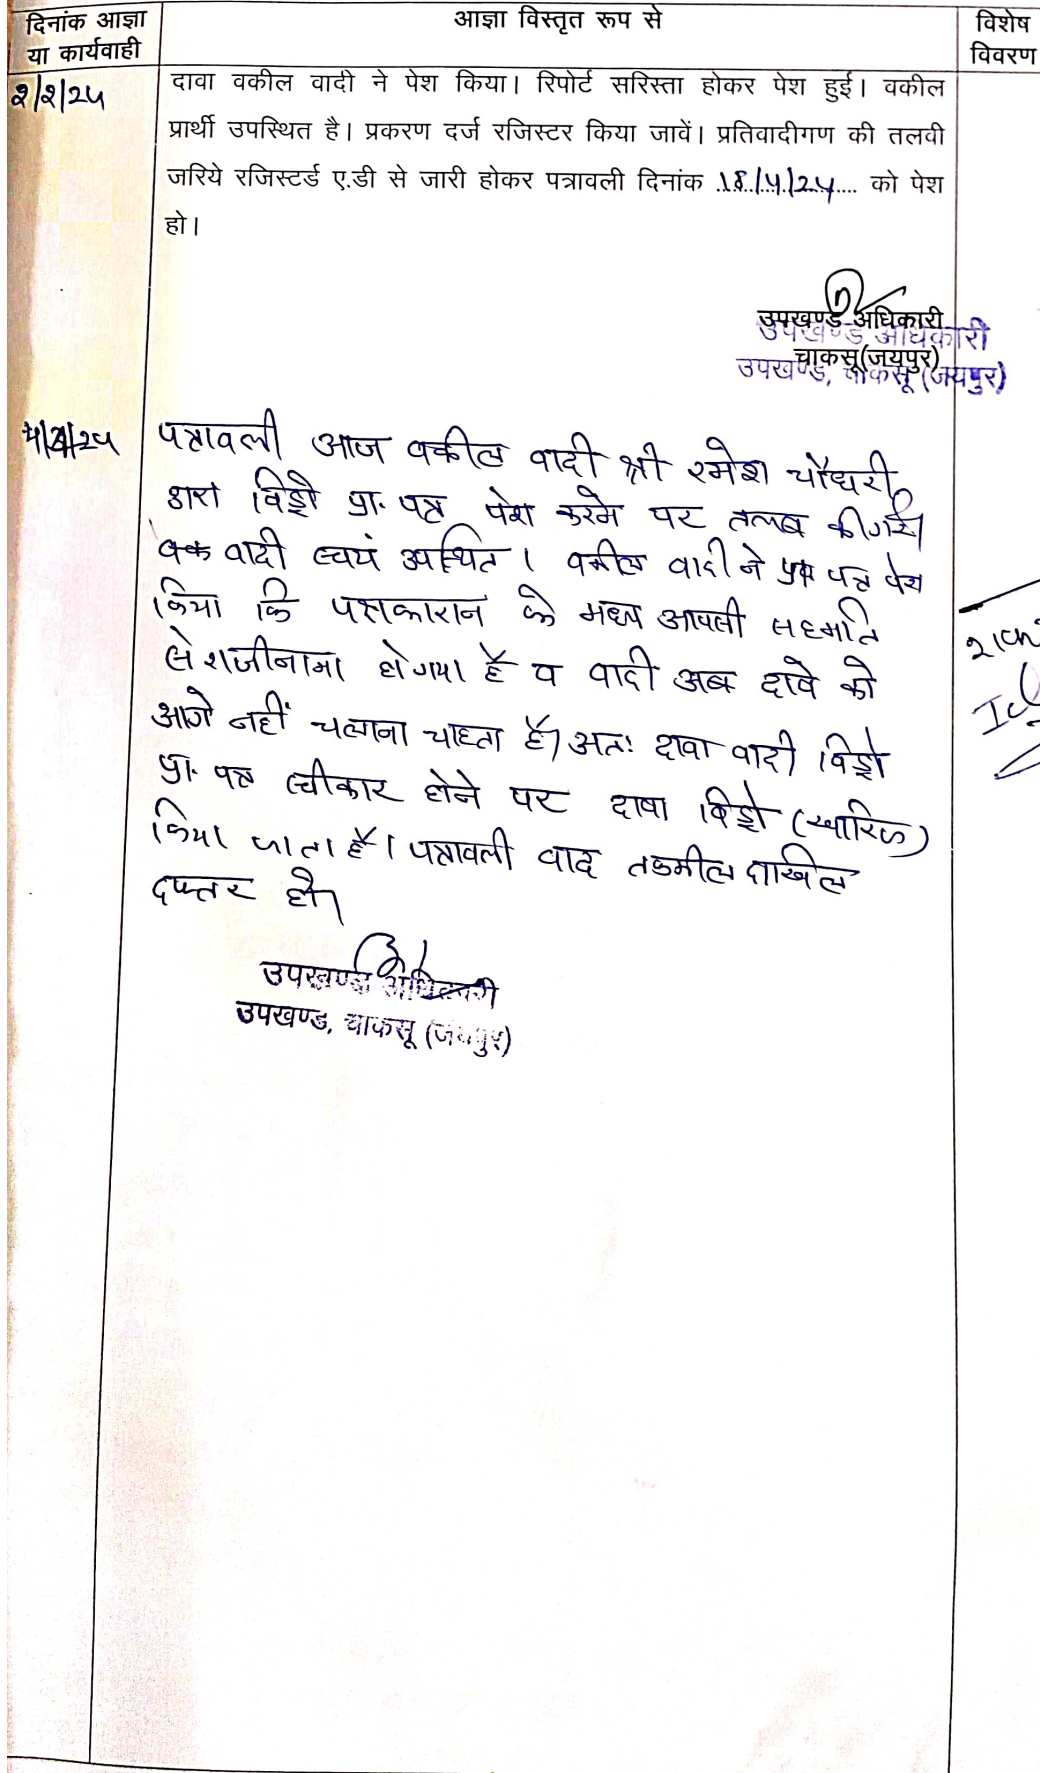 दिनांक आज्ञा
या कार्यवाही
आज्ञा विस्तृत रूप से
विशेष
विवरण
दावा वकील वादी ने पेश किया। रिपोर्ट सरिस्ता होकर पेश हुई। वकील
प्रार्थी उपस्थित है। प्रकरण दर्ज रजिस्टर किया जावें। प्रतिवादीगण की तलवी
जरिये रजिस्टर्ड ए.डी से जारी होकर पत्रावली दिनांक 18/4/24 को पेश
हो।
उपखण्ड अधिकारी
चाकसू(जयपुर)
उपखण्ड अधिकारी
उपखण्ड, चाकसू (जयपुर)
पत्रावली आज वकील वादी श्री रमेश चौधरी
द्वारा विड्रो प्रा. पत्र पेश करने पर तलब की गई।
वादी स्वयं उपस्थित । वकील वादी ने पत्र पेश
किया कि पक्षकारान के मध्य आपसी सहमति
से राजीनामा हो गया है व वादी अब दावे को
आगे नहीं चलाना चाहता है। अतः दावा वादी विड्रो
प्रा. पत्र स्वीकार होने पर दावा विड्रो (खारिज)
किया जाता है। पत्रावली बाद तकमील दाखिल
दफ्तर हो।
उपखण्ड अधिकारी
उपखण्ड, चाकसू (जयपुर)